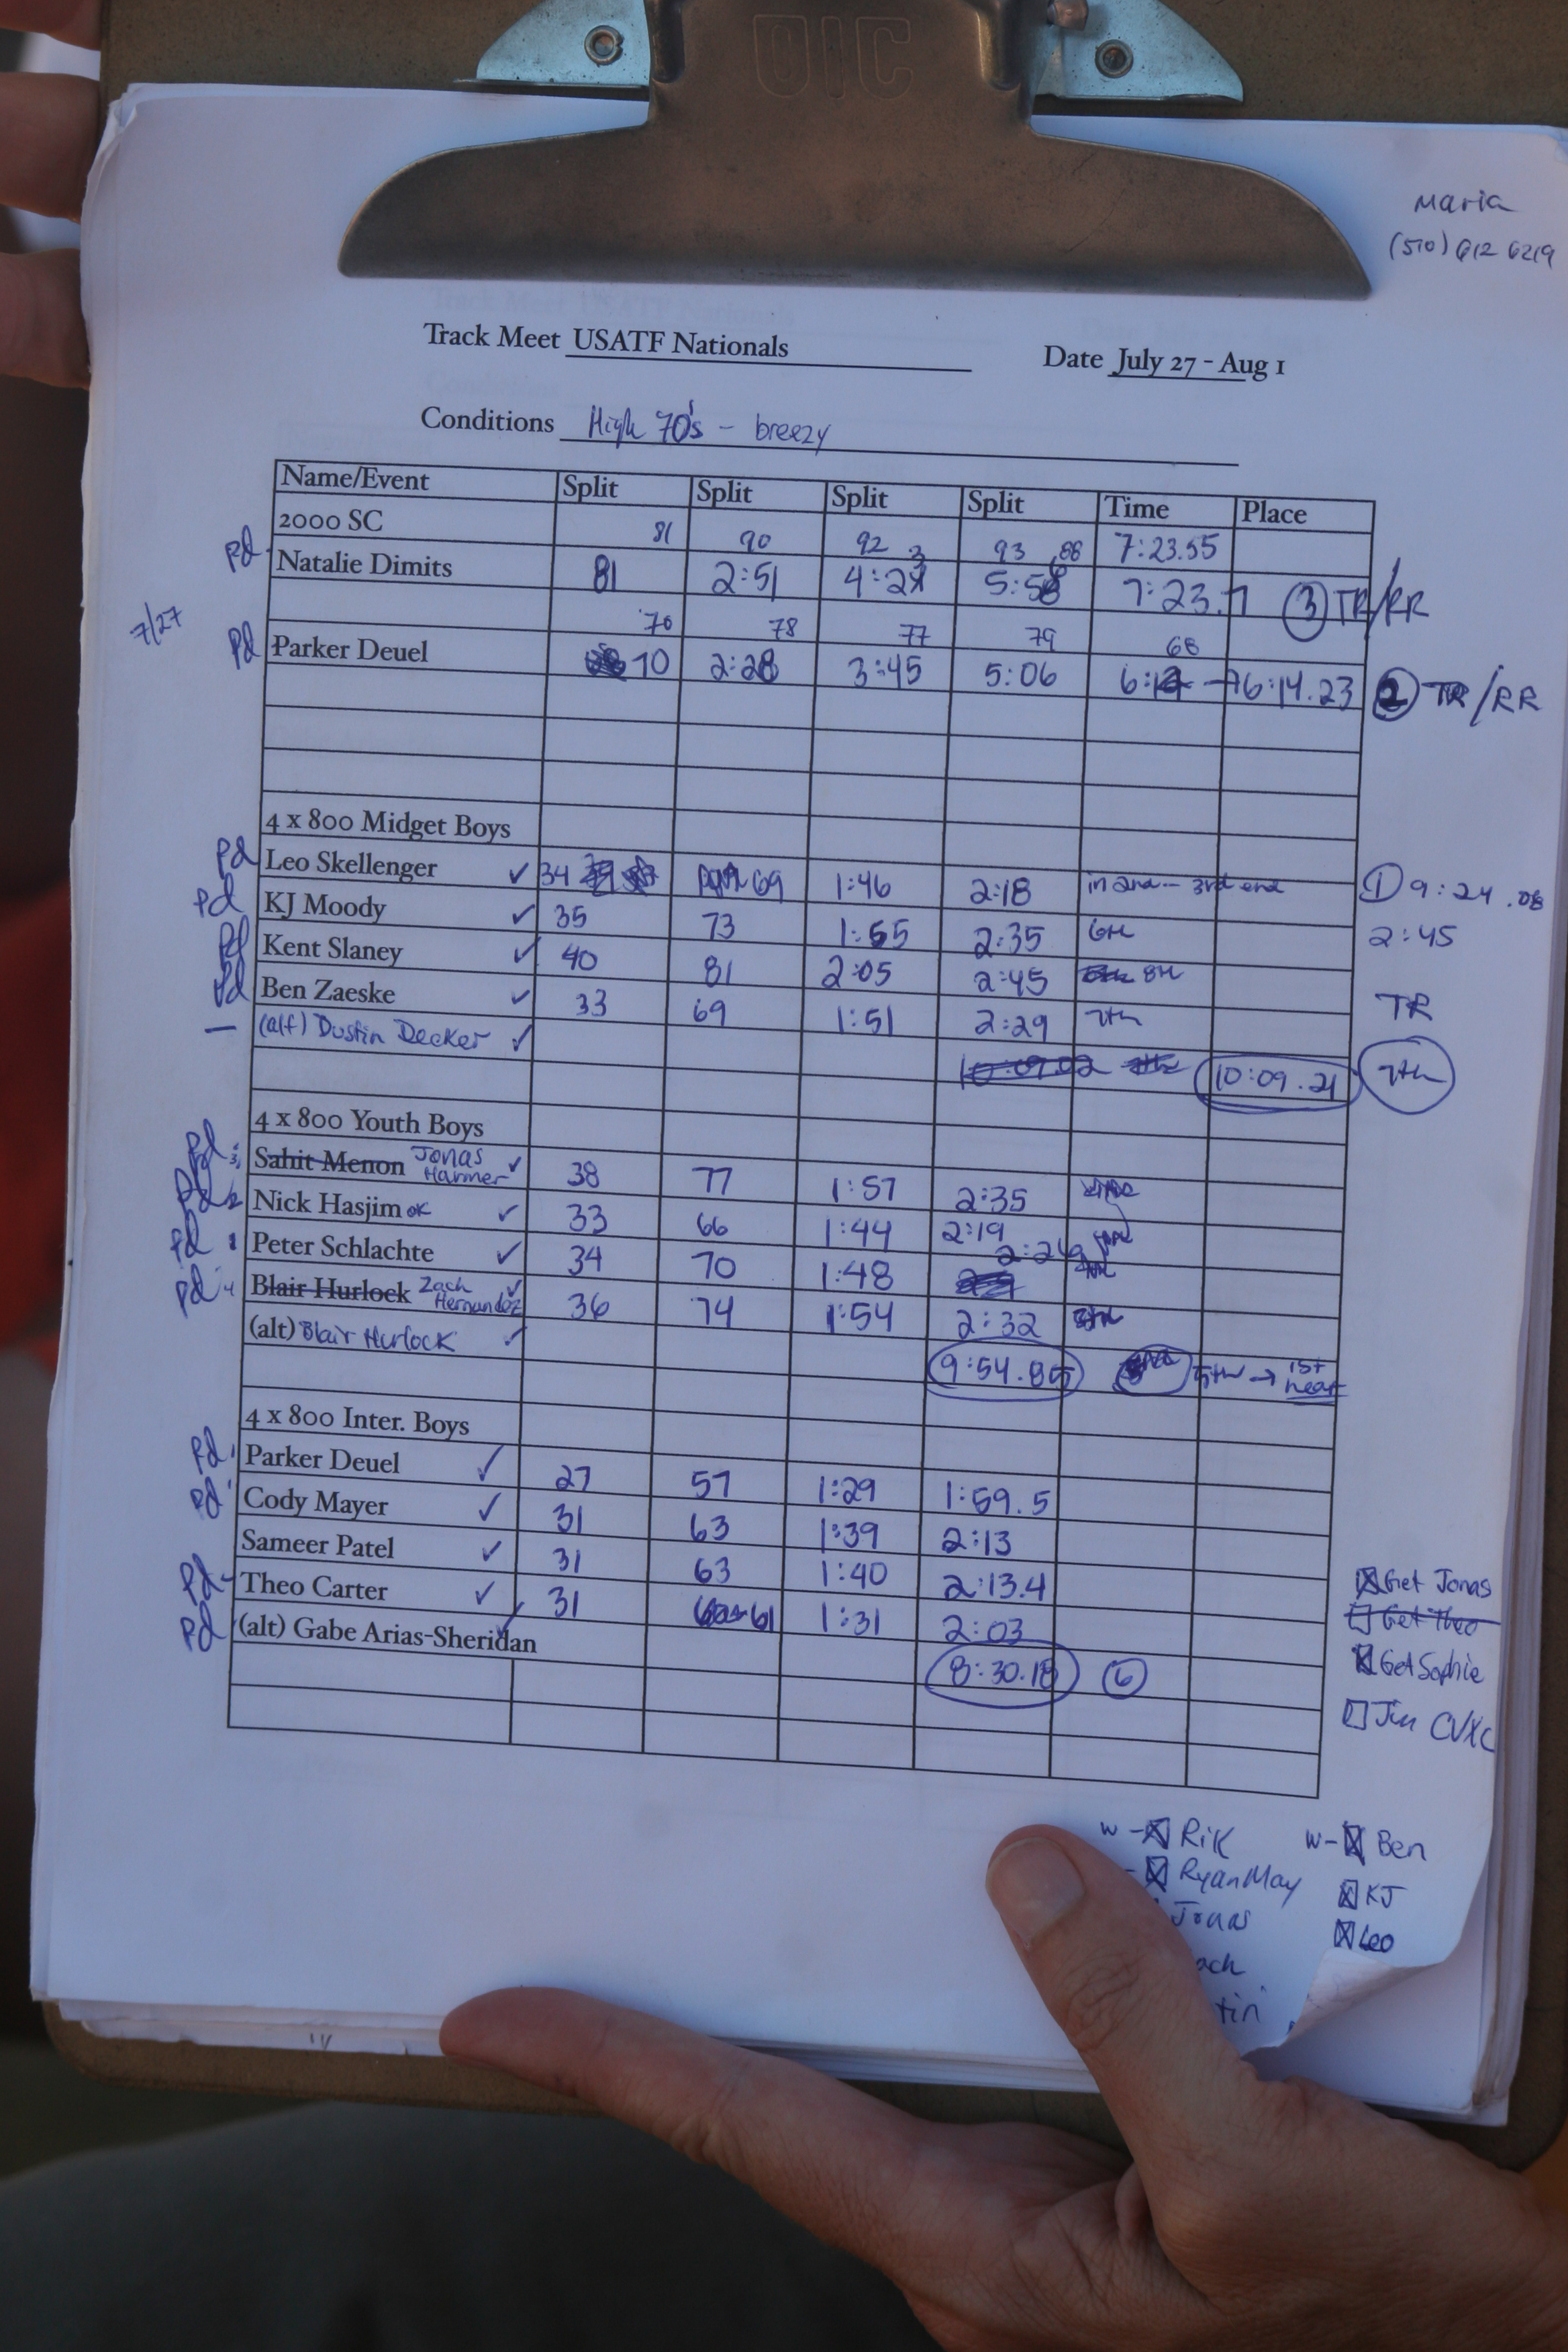 OIC
Maria
(510) 612 6219
Track Meet USATF Nationals Date July 27 - Aug 1
Conditions High 70's - breezy
Name/Event Split Split Split Split Time Place
2000 SC 81 90 92 93 88 7:23.55
pd Natalie Dimits 81 2:51 4:23 5:56 7:23.7 3 TR/RR
7/27
70 78 77 79 68
pd Parker Deuel 70 2:28 3:45 5:06 6:14.23 2 TR/RR
4 x 800 Midget Boys
pd Leo Skellenger ✓ 34 69 1:46 2:18 in 2nd - 3rd end 1 9:24.08
pd KJ Moody ✓ 35 73 1:55 2:35 6th 2:45
pd Kent Slaney ✓ 40 81 2:05 2:45 8th
pd Ben Zaeske ✓ 33 69 1:51 2:29 7th TR
— (alt) Dustin Decker ✓
10:09.02 10:09.21 7th
4 x 800 Youth Boys
pd 3 Sahit Menon Jonas Harmer ✓ 38 77 1:57 2:35
pd 2 Nick Hasjim OK ✓ 33 66 1:44 2:19
pd 1 Peter Schlachte ✓ 34 70 1:48 2:24
pd 4 Blair Hurlock Zach Hernandez ✓ 36 74 1:54 2:32
(alt) Blair Hurlock ✓
9:54.85 5th → 1st heat
4 x 800 Inter. Boys
pd Parker Deuel ✓ 27 57 1:29 1:59.5
pd Cody Mayer ✓ 31 63 1:39 2:13
Sameer Patel ✓ 31 63 1:40 2:13.4
pd Theo Carter ✓ 31 61 1:31 2:03
pd (alt) Gabe Arias-Sheridan ✓
8:30.18 6
Get Jonas
Get Theo
Get Sophie
Jim CVXC
w - Rik w - Ben
- Ryan May KJ
Jonas Leo
ach
tin